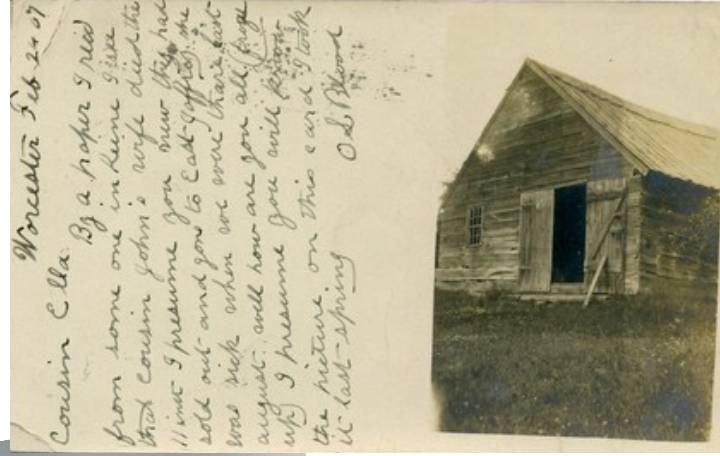 Worcester Feb 24 07
Cousin Ella.
By a paper I recd
from some one in Keene I see
that cousin John's wife died the
11 inst I presume you new they had
sold out and gone to East Jaffrey she
was sick when we were thare last
august. well how are you all froze
up I presume you will know
the picture on this card I took
it last spring O L Blood